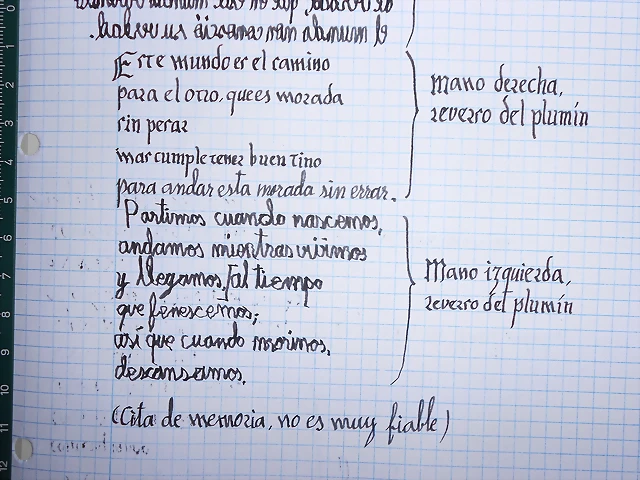 Este mundo es el camino
para el otro, que es morada
sin pesar
mas cumple tener buen tino
para andar esta morada sin errar.
Mano derecha,
reverso del plumín
Partimos cuando nascemos,
andamos mientras vivimos
y llegamos, al tiempo
que fenescemos;
así que cuando morimos,
descansamos.
Mano izquierda,
reverso del plumín
(Cita de memoria, no es muy fiable)